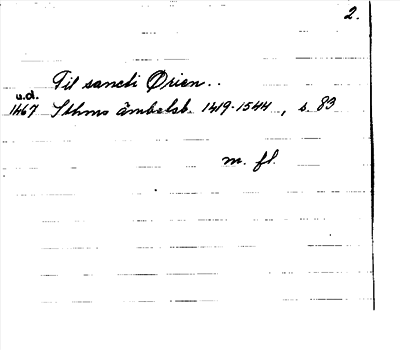 2.
Til sancti Ørien..
u.d.
1467 Sthms ämbetsb. 1419-1544, s. 83
m. fl.